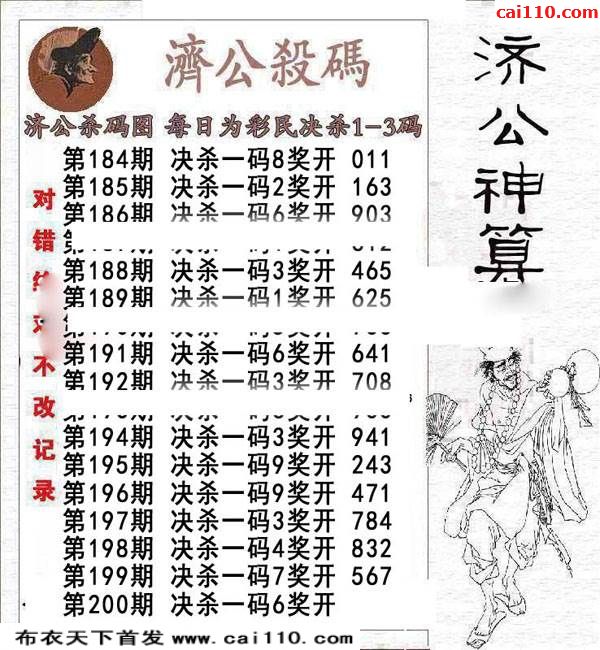 cai110.com
濟公殺碼
济公神算
济公杀码图 每日为彩民决杀1-3码
第184期 决杀一码8奖开 011
第185期 决杀一码2奖开 163
第186期 决杀一码6奖开 903
第188期 决杀一码3奖开 465
第189期 决杀一码1奖开 625
第191期 决杀一码6奖开 641
第192期 决杀一码3奖开 708
第194期 决杀一码3奖开 941
第195期 决杀一码9奖开 243
第196期 决杀一码9奖开 471
第197期 决杀一码3奖开 784
第198期 决杀一码4奖开 832
第199期 决杀一码7奖开 567
第200期 决杀一码6奖开
对错 不改记录
布衣天下首发 www.cai110.com